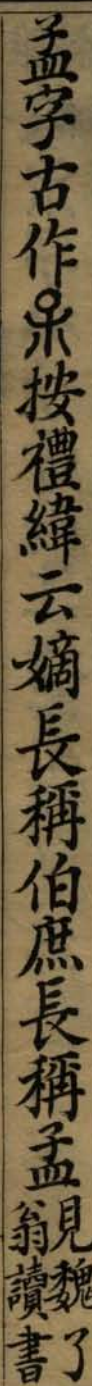 孟字古作按禮緯云嫡長稱伯庶長稱孟
見魏了
翁讀書